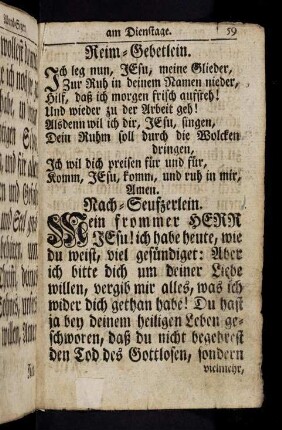 am Dienstage. 59
Reim-Gebetlein.
Ich leg nun, JEsu, meine Glieder,
Zur Ruh in deinem Namen nieder,
Hilf, daß ich morgen frisch aufsteh!
Und wieder zu der Arbeit geh!
Alsdenn wil ich dir, JEsu, singen,
Dein Ruhm soll durch die Wolcken
dringen,
Ich wil dich preisen für und für,
Komm, JEsu, komm, und ruh in mir,
Amen.
Nach-Seufzerlein.
Mein frommer HERR
JEsu! ich habe heute, wie
du weist, viel gesündiget: Aber
ich bitte dich um deiner Liebe
willen, vergib mir alles, was ich
wider dich gethan habe! Du hast
ja bey deinem heiligen Leben ge-
schworen, daß du nicht begehrest
den Tod des Gottlosen, sondern
vielmehr,